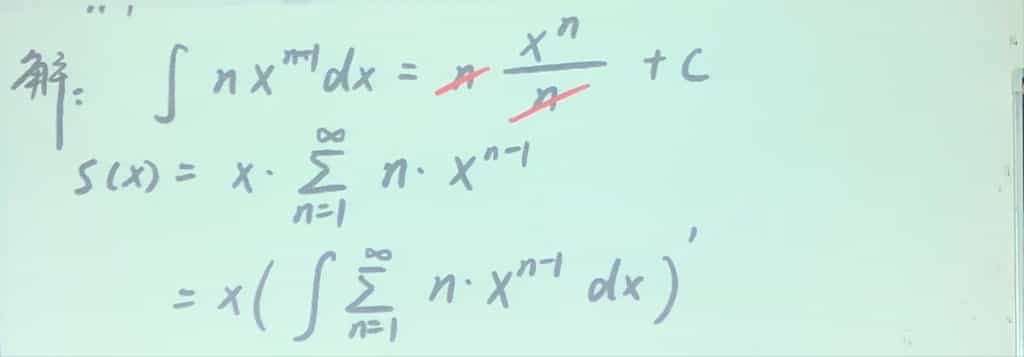 解: ∫ n x^{n-1} dx = n x^n / n + C
S(x) = x · ∑_{n=1}^{∞} n · x^{n-1}
= x ( ∫ ∑_{n=1}^{∞} n · x^{n-1} dx )'